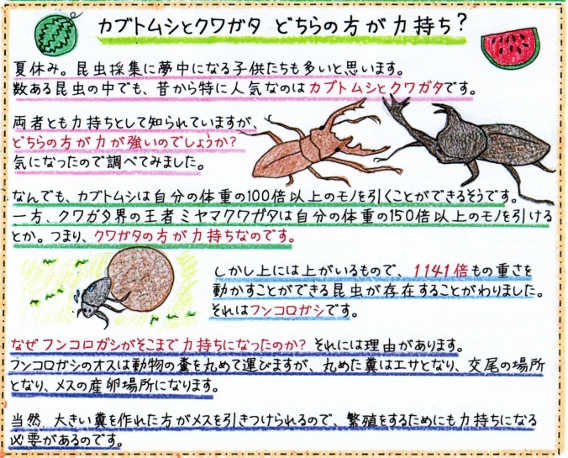 カブトムシとクワガタ どちらの方が力持ち?
夏休み。昆虫採集に夢中になる子供たちも多いと思います。
数ある昆虫の中でも、昔から特に人気なのはカブトムシとクワガタです。
両者とも力持ちとして知られていますが、
どちらの方が力が強いのでしょうか?
気になったので調べてみました。
なんでも、カブトムシは自分の体重の100倍以上のモノを引くことができるそうです。
一方、クワガタ界の王者ミヤマクワガタは自分の体重の150倍以上のモノを引ける
とか。つまり、クワガタの方が力持ちなのです。
しかし上には上がいるもので、1141倍もの重さを
動かすことができる昆虫が存在することがわりました。
それはフンコロガシです。
なぜフンコロガシがそこまで力持ちになったのか? それには理由があります。
フンコロガシのオスは動物の糞を丸めて運びますが、丸めた糞はエサとなり、交尾の場所
となり、メスの産卵場所になります。
当然、大きい糞を作れた方がメスを引きつけられるので、繁殖をするためにも力持ちになる
必要があるのです。